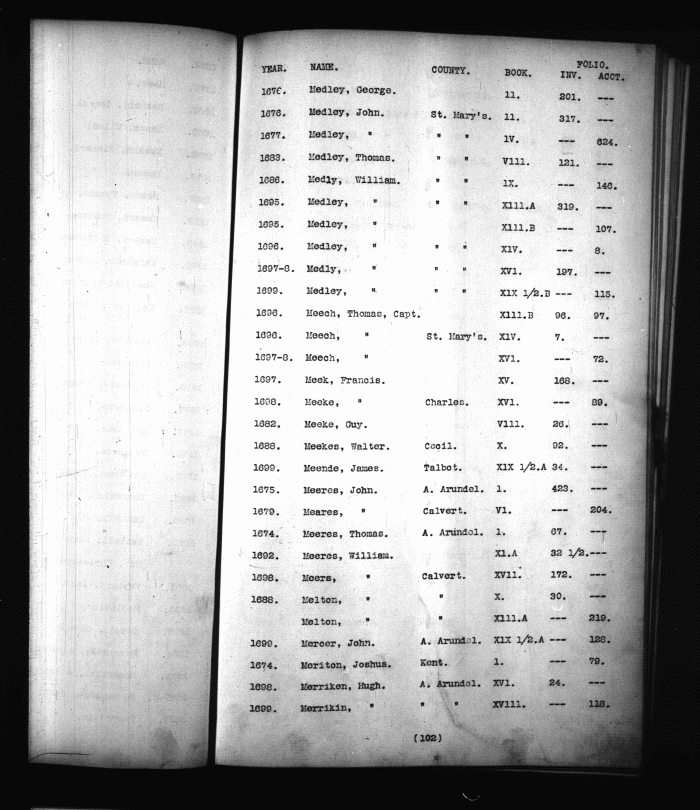 FOLIO.
YEAR. NAME. COUNTY. BOOK. INV. ACCT.
1676. Medley, George. 11. 201. ---
1676. Medley, John. St. Mary's. 11. 317. ---
1677. Medley, " " " 1V. --- 624.
1683. Medley, Thomas. " " V111. 121. ---
1686. Medly, William. " " 1X. --- 146.
1695. Medley, " " " X111.A 319. ---
1695. Medley, " X111.B --- 107.
1696. Medley, " " " X1V. --- 8.
1697-8. Medly, " " " XV1. 197. ---
1699. Medley, " " " X1X 1/2.B --- 115.
1696. Meech, Thomas, Capt. X111.B 96. 97.
1696. Meech, " St. Mary's. X1V. 7. ---
1697-8. Meech, " XV1. --- 72.
1697. Meek, Francis. XV. 168. ---
1698. Meeke, " Charles. XV1. --- 89.
1682. Meeke, Guy. V111. 26. ---
1688. Meekes, Walter. Cecil. X. 92. ---
1699. Meende, James. Talbot. X1X 1/2.A 34. ---
1675. Meeres, John. A. Arundel. 1. 423. ---
1679. Meares, " Calvert. V1. --- 204.
1674. Meeres, Thomas. A. Arundel. 1. 67. ---
1692. Meeres, William. X1.A 32 1/2. ---
1698. Meers, " Calvert. XV11. 172. ---
1688. Melton, " " X. 30. ---
Melton, " " X111.A --- 219.
1699. Mercer, John. A. Arundel. X1X 1/2.A --- 128.
1674. Meriton, Joshua. Kent. 1. --- 79.
1698. Merriken, Hugh. A. Arundel. XV1. 24. ---
1699. Merrikin, " " " XV111. --- 118.
(102)